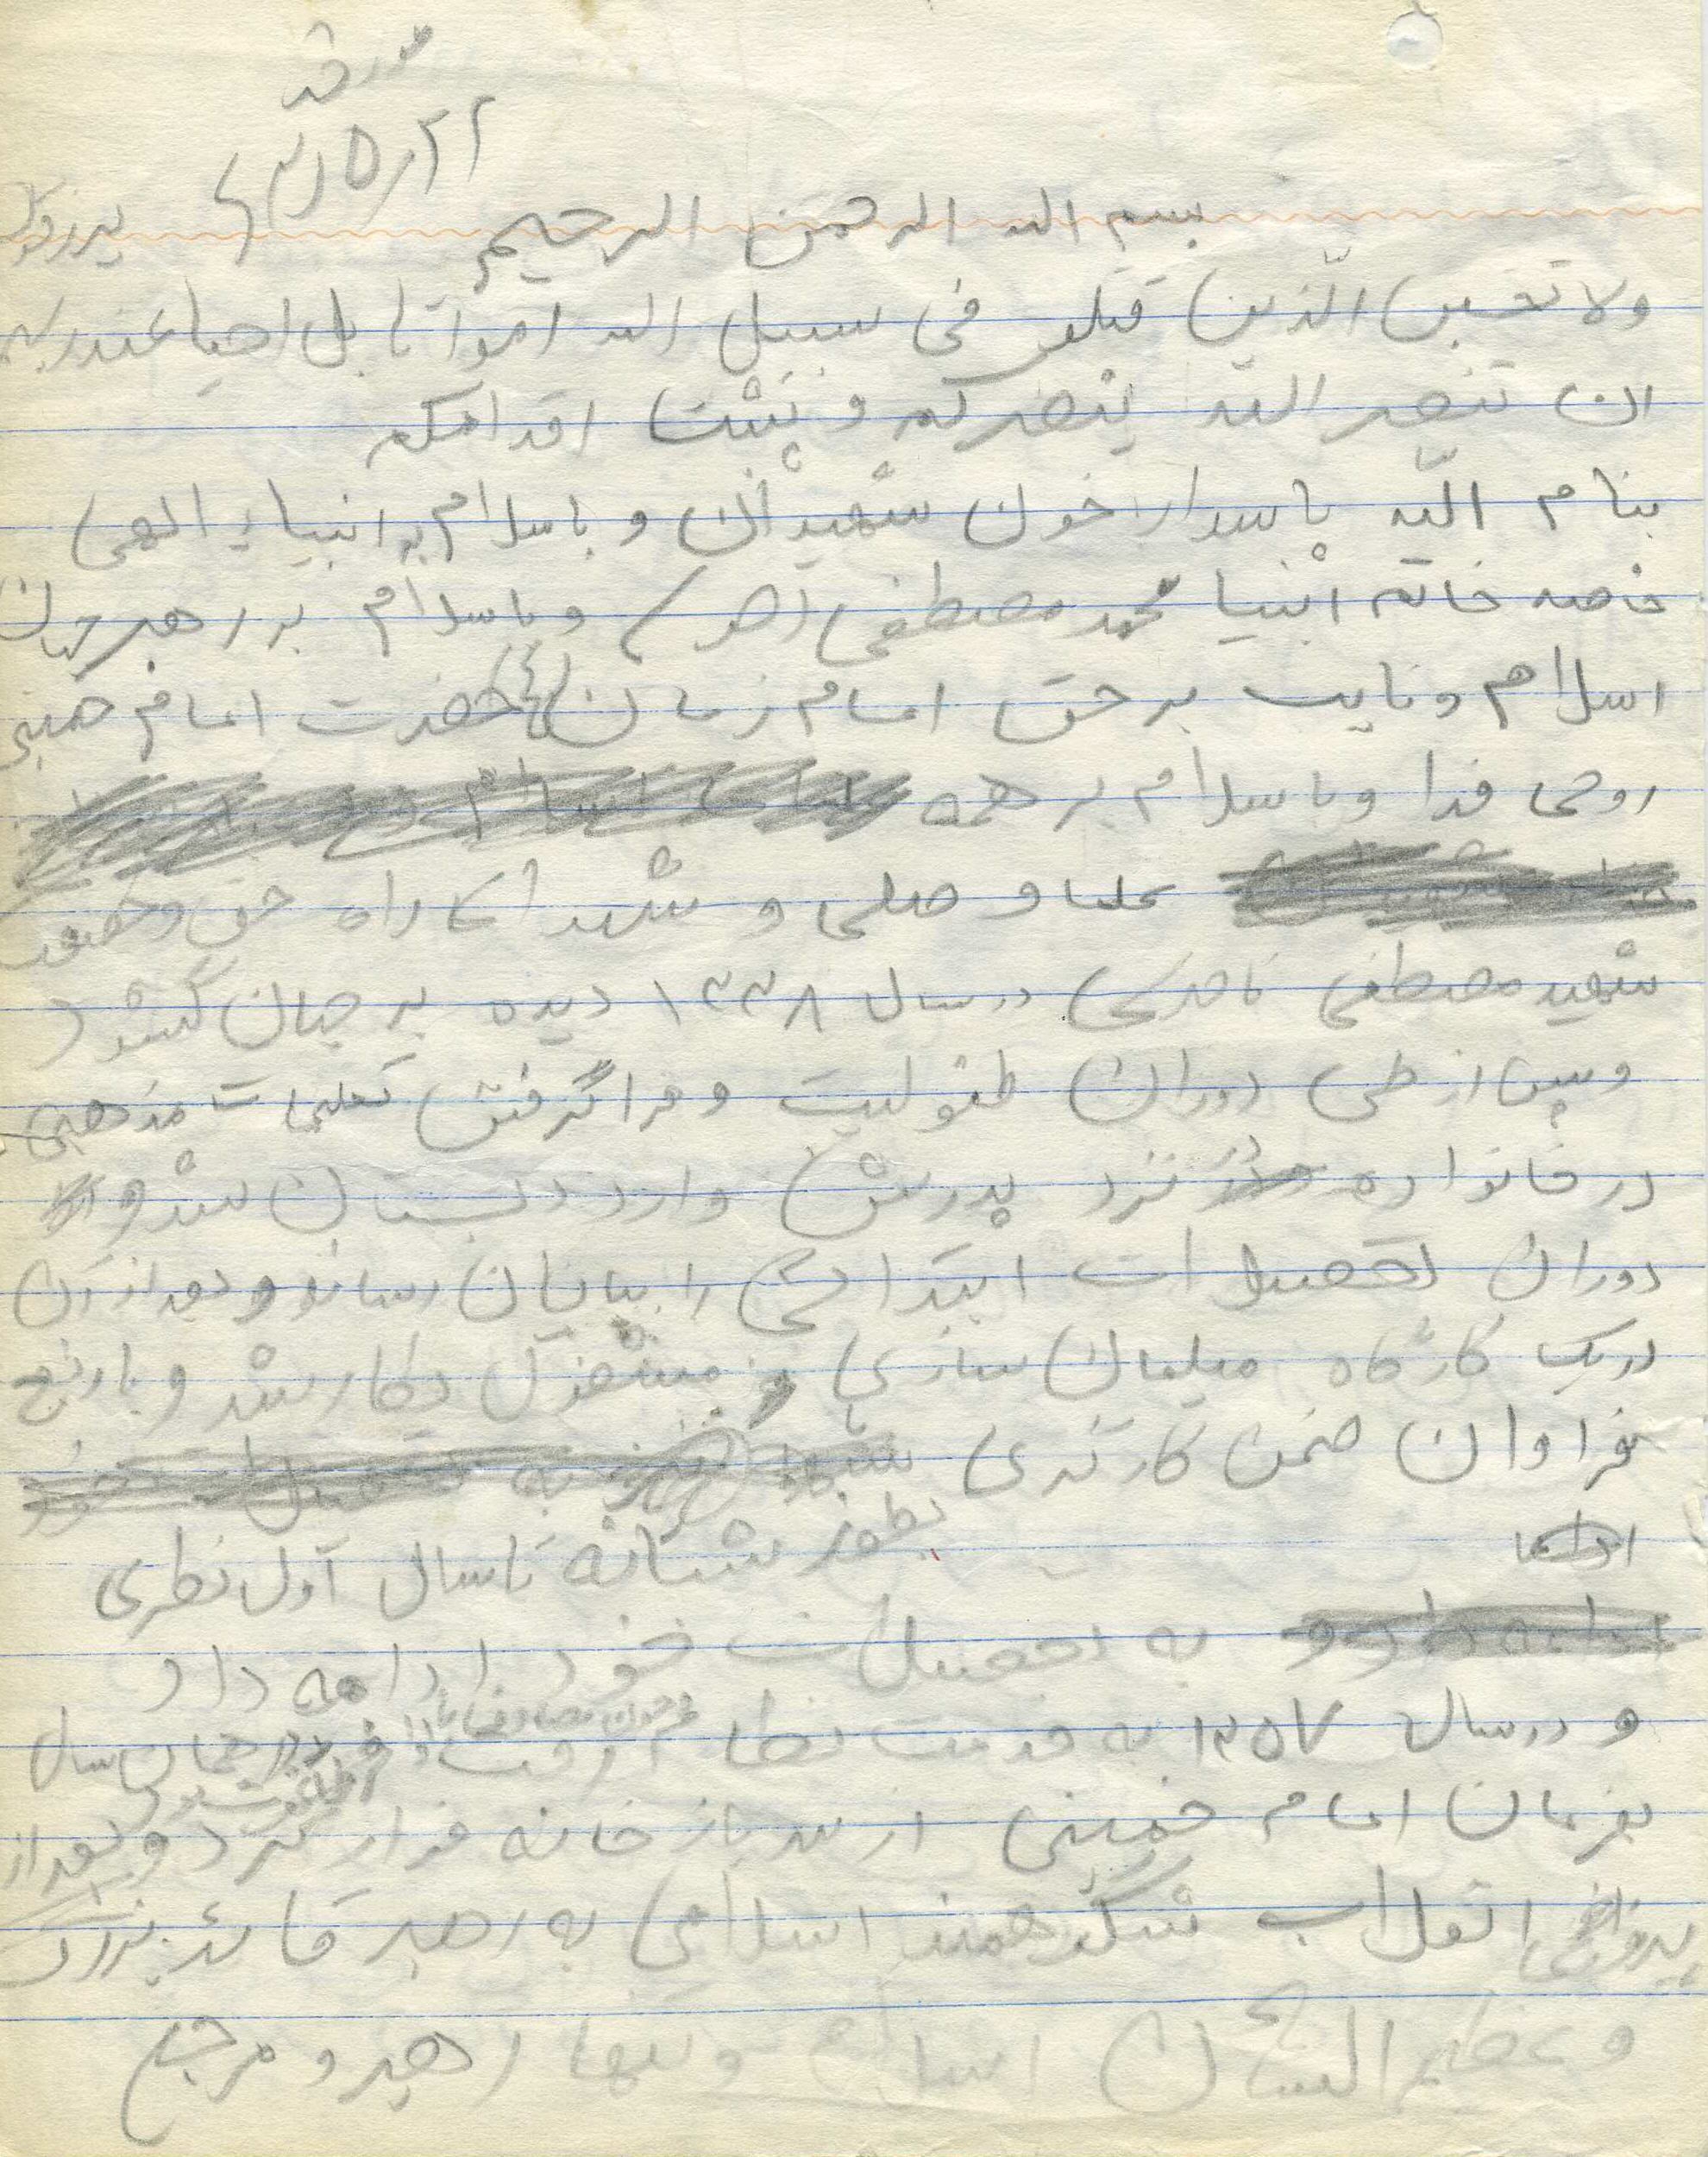 بسم الله الرحمن الرحیم
ولا تحسبن الّذین قتلو فی سبیل الله امواتا بل احیا عند ربهم یرزقون
ان تنصر الله ینصرکم و یثبت اقدامکم
بنام اللّه پاسدار خون شهیدان و با سلام بر انبیاء الهی
خاصه خاتم انبیا محمد مصطفی (ص) و با سلام بر رهبر جهان
اسلام و نایب بر حق امام زمان (عج) حضرت امام خمینی
روحی فدا و با سلام بر همه
علما و صلحا و شهدای راه حق و حقیقت
شهید مصطفی در سال ۱۳۳۸ دیده بر جهان گشود
و پس از طی دوران طفولیت و فراگرفتن تعلیمات مذهبی
در خانواده نزد پدرش وارد دبستان شد و
دوران تحصیلات ابتدائی را بپایان رساند و بعد از آن
در یک کارگاه مبلمان سازی مشغول بکار شد و با رنج
فراوان ضمن کارگری
بطور شبانه تا سال اول نظری
به تحصیلات خود ادامه داد
و در سال ۱۳۵۷ به خدمت نظام رفت در همان سال
بفرمان امام خمینی از سربازخانه فرار کرد و بعد از
پیروزی انقلاب شکوهمند اسلامی به رهبر قائد بزرگ
و عظیم الشأن اسلام و تنها رهبر و مرجع